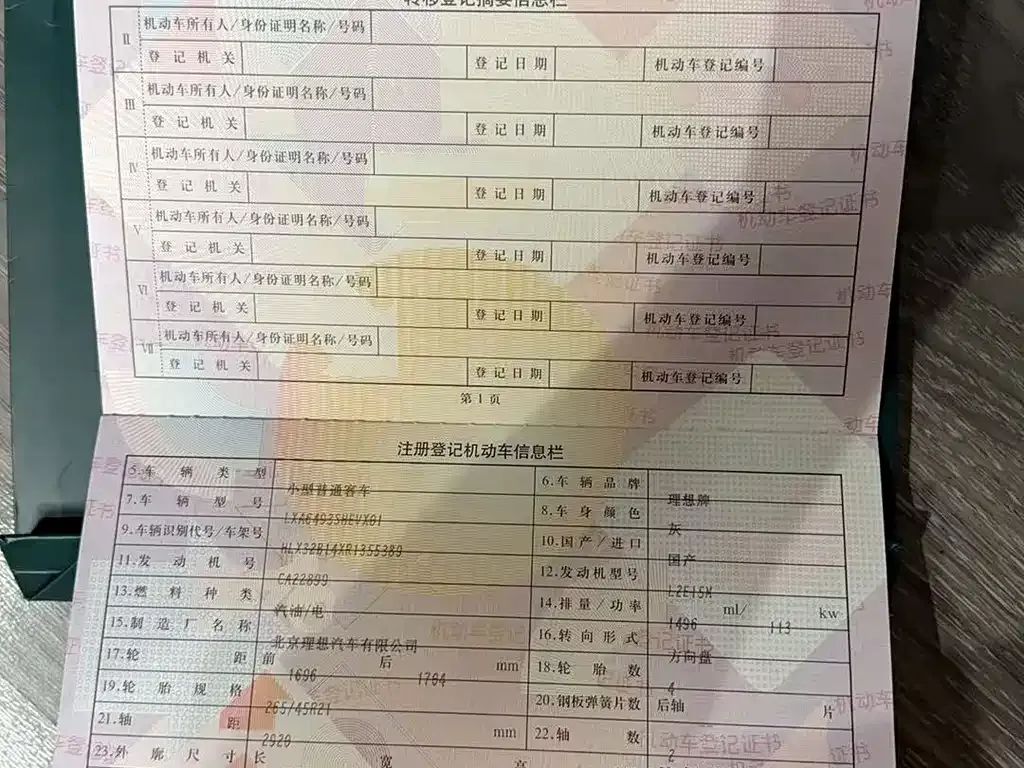 转移登记摘要信息栏
Ⅱ 机动车所有人/身份证明名称/号码
登记机关 登记日期 机动车登记编号
Ⅲ 机动车所有人/身份证明名称/号码
登记机关 登记日期 机动车登记编号
Ⅳ 机动车所有人/身份证明名称/号码
登记机关 登记日期 机动车登记编号
Ⅴ 机动车所有人/身份证明名称/号码
登记机关 登记日期 机动车登记编号
Ⅵ 机动车所有人/身份证明名称/号码
登记机关 登记日期 机动车登记编号
Ⅶ 机动车所有人/身份证明名称/号码
登记机关 登记日期 机动车登记编号
第1页
注册登记机动车信息栏
5.车辆类型 小型普通客车 6.车辆品牌 理想牌
7.车辆型号 LXA6493SHEVX01 8.车身颜色 灰
9.车辆识别代号/车架号 HLX32B14XR1355389 10.国产/进口 国产
11.发动机号 CA22899 12.发动机型号 L2E15M
13.燃料种类 汽油/电 14.排量/功率 1496 ml/ 113 kw
15.制造厂名称 北京理想汽车有限公司 16.转向形式 方向盘
17.轮距 前 1696 后 1704 mm 18.轮胎数 4
19.轮胎规格 265/45R21 20.钢板弹簧片数 后轴 片
21.轴距 2920 mm 22.轴数 2
23.外廓尺寸 长 宽 高